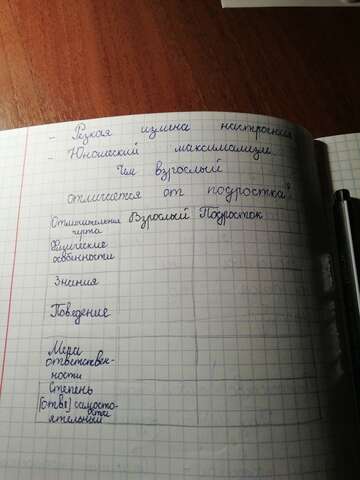 - Резкая измена настроения
- Юношеский максимализм
Чем взрослый
отличается от подростка?
Отличительная черта Взрослый Подросток
Физические
особенности
Знания
Поведение
Мера
ответствен-
ности
Степень
[отве] самосто-
ятельности